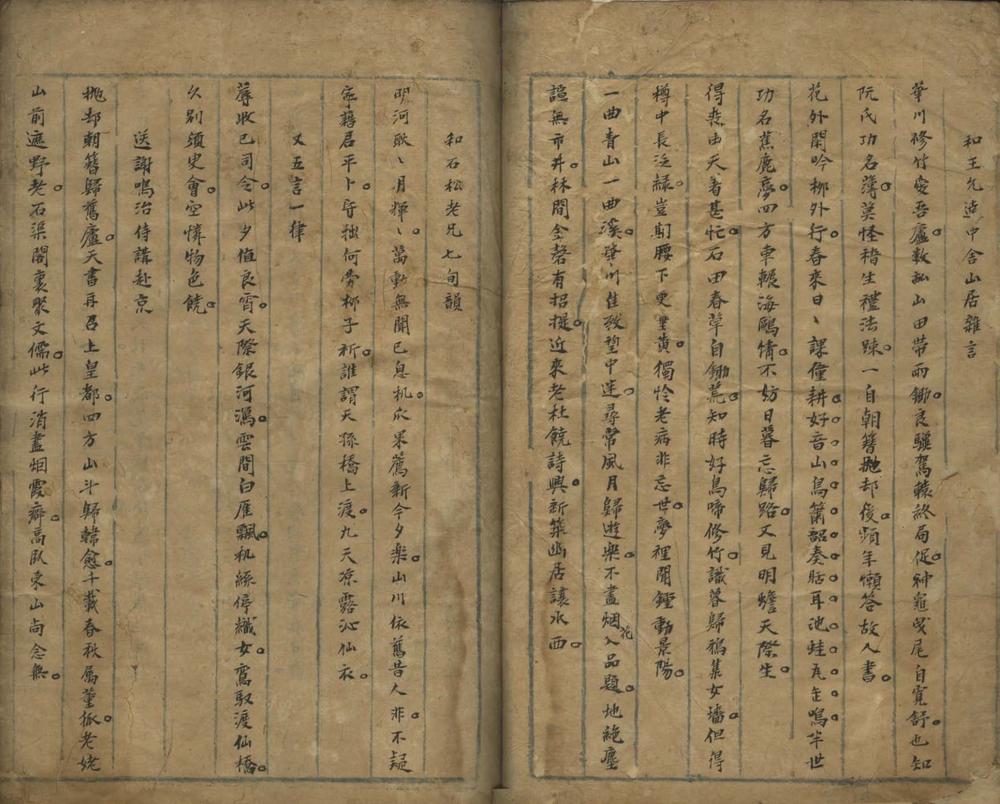 和王允迪中舍山居雜言
華川修竹愛吾廬數畝山田帶雨鋤良驥駕轅終局促神龜曳尾自寬舒也知
阮氏功名薄莫怪嵇生禮法踈一自朝簪拋却後頻年懶答故人書
花外閑吟柳外行春來日〻課僮耕好音山鳥簫韶奏聒耳池蛙瓦缶鳴半世
功名蕉鹿夢四方車轍海鷗情不妨日暮忘歸路又見明蟾天際生
得喪由天着甚忙石田春草自鋤荒知時好鳥啼修竹識暮歸鴉集女墻但得
樽中長泛綠豈期腰下更垂黃獨怜老病非忘世夢裡聞鐘動景陽
一曲青山一曲溪華川佳致望中迷尋常風月歸遊樂不盡烟花入品題地絶塵
諠無市井林間金磬有招提近來老杜饒詩興新築幽居讓水西
和石松老兄七旬韻
明河耿〻月輝〻萬動無聞已息机瓜果薦新今夕樂山川依舊昔人非不疑
卜守拙何勞柳子祈誰謂天孫橋上渡九天凉露沁仙衣
又五言一律
蓐收已司令此夕值良宵天際銀河瀉雲間白雁飄机絲停織女鸞馭渡仙橋
久別須臾會空憐物色饒
送謝鳴治侍講赴京
拋却朝簪歸舊廬天書再召上皇都四方山斗歸韓愈千載春秋属董狐老姥
山前遮野老石渠閣裏聚文儒此行消盡烟霞癖高臥東山尚念無